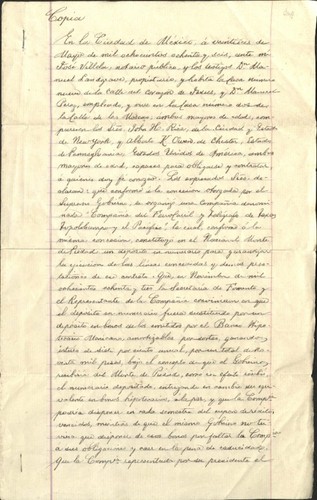 Copia
En la Ciudad de México, á veintitres de
Mayo de mil ochocientos ochenta y seis, ante mi
Villela, notario público, y los testigos Dn. Ma-
nuel propietario, y habita la casa número
nueve de la Calle del Corazón de Jesus, y Dn. Manuel
Perez, empleado, y vive en la casa número dos de
la Calle de las ambos mayores de edad, com-
parecen los Sres. John H. Rice, de la Ciudad y Estado
de New York, y Alberto K. Owen, de Chester, Estado
de Pensylvania, Estados Unidos de América, ambos
mayores de edad, capaces para obligarse y contratar,
á quienes doy fé conozco. Los expresados Sres. de-
claran: que conforme á la concesion otorgada por el
Supremo Gobierno, se organizó una Compañía denomi-
nada "Compañía del Ferrocarril y Telégrafo de Texas,
Topolobampo y el Pacífico" la cual, conforme á la
misma concesion, constituyó en el Nacional Monte
de Piedad un depósito en numerario para garantizar
la ejecucion de las líneas concesionadas y demas pres-
taciones de su contrato: Que en Noviembre de mil
ochocientos ochenta y tres la Secretaría de Fomento y
el Representante de la Compañía convinieron en que
el depósito en numerario fuese substituido por un
depósito en bonos de los emitidos por el Banco Hipo-
tecario Mexicano amortizables por sorteos, ganando
interés de seis por ciento anual, por un total de
mil pesos, bajo el concepto de que el Gobierno
recibiria del Monte de Piedad, como en efecto recibió,
el numerario depositado, entregando en cambio su equi-
valente en bonos hipotecarios, á la par, y que la Compa.
podria disponer en cada semestre del cupon
vencido, mientras de que el mismo Gobierno no tu-
viera que disponer de esos bonos por faltar la Compa.
á sus obligaciones y caer en la pena de caducidad:
Que la Compa. representada por su presidente el